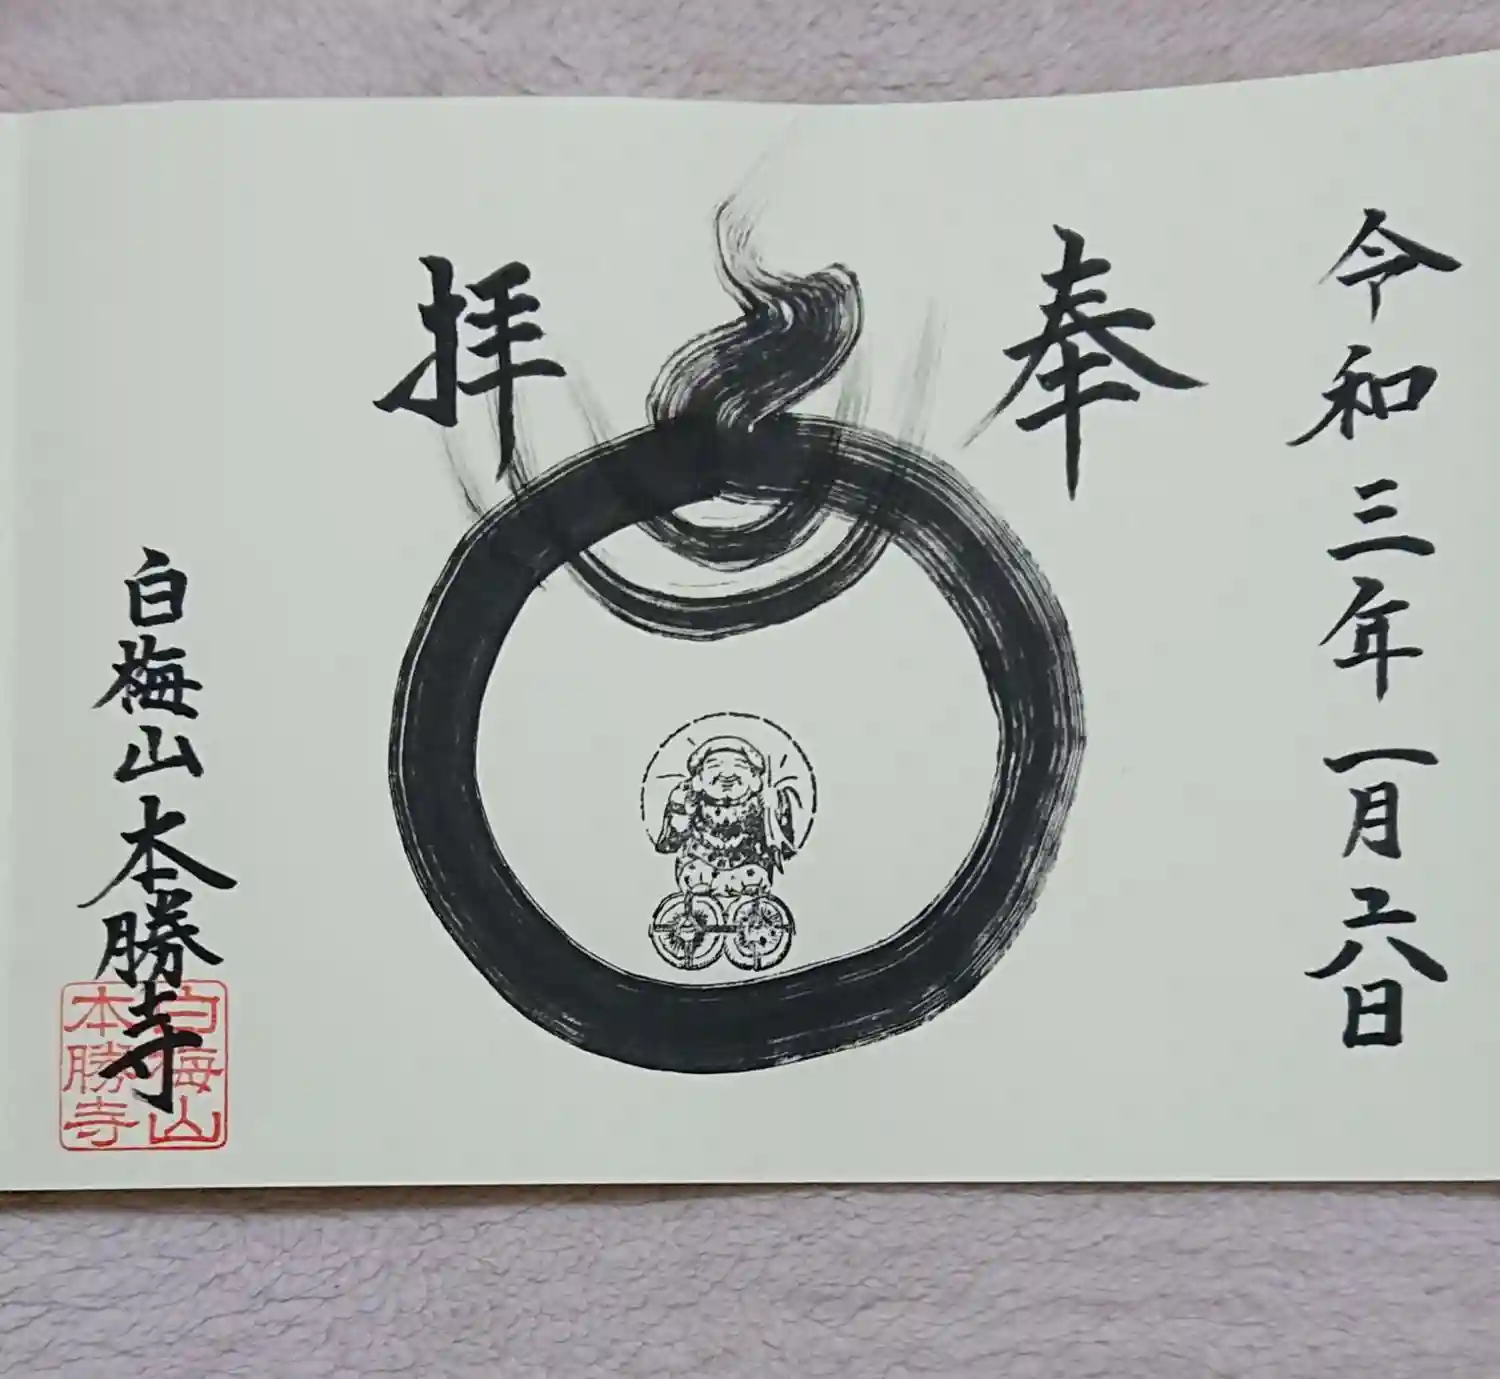 令和三年一月六日
奉
拝
白梅山本勝寺
白梅山
本勝寺